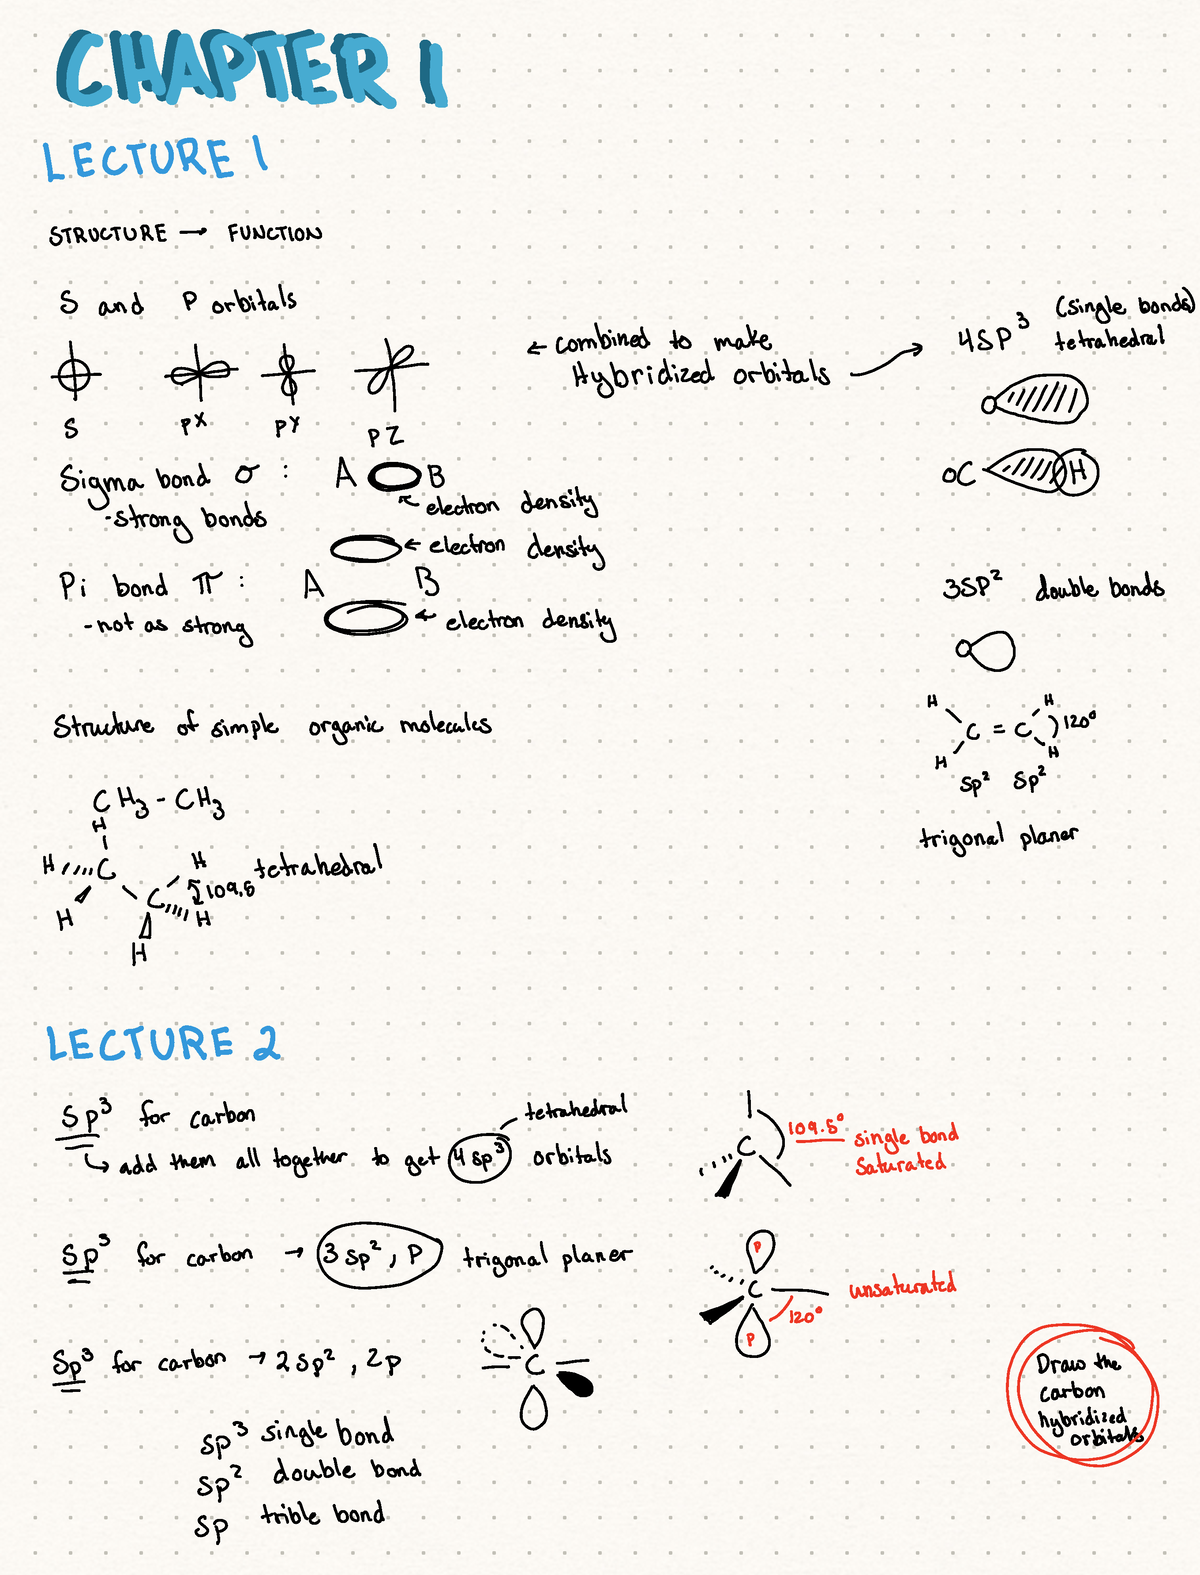 CHAPTER 1
LECTURE 1
STRUCTURE → FUNCTION
S and P orbitals
S
pX
pY
PZ
← combined to make
Hybridized orbitals
4SP³ (single bonds)
tetrahedral
OC H
Sigma bond σ :
-strong bonds
A B
electron density
← electron density
Pi bond π :
-not as strong
A B
← electron density
3SP² double bonds
H H
C = C 120°
H H
Sp² Sp²
trigonal planer
Structure of simple organic molecules
CH₃ - CH₃
H
H C H tetrahedral
C 109.5
H H
H
LECTURE 2
Sp³ for carbon
tetrahedral
↳ add them all together to get 4 sp³ orbitals
C
109.5° single bond
Saturated
Sp³ for carbon → 3 sp², P trigonal planer
P
C
P
120°
unsaturated
Sp³ for carbon → 2 sp², 2p
C
sp³ single bond
sp² double bond
sp trible bond
Draw the
carbon
hybridized
orbitals